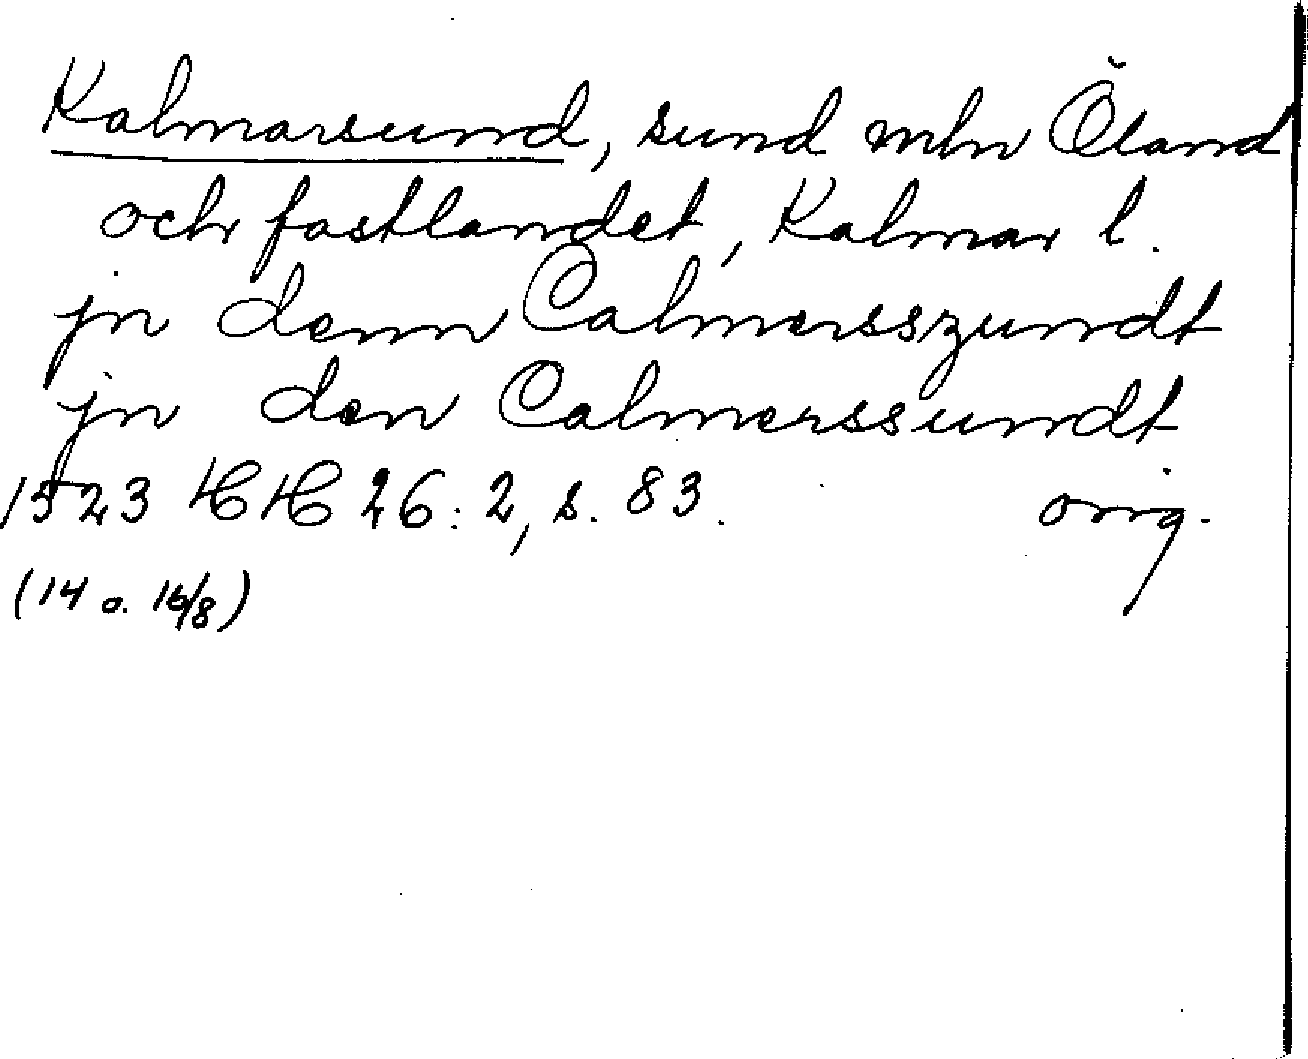 Kalmarsund, sund mln Öland
och fastlandet, Kalmar l.
jn denn Calmersszundt
jn den Calmerssundt
1523 HH 26:2, s. 83. orig.
(14 o. 16/8)